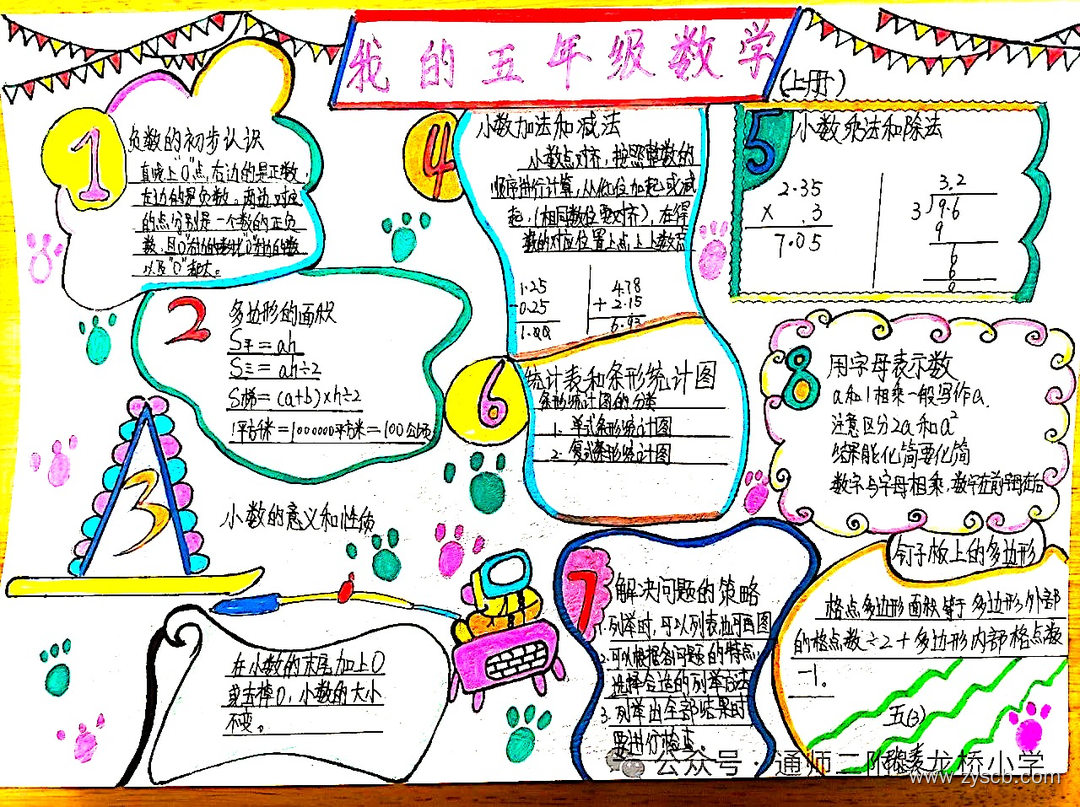 我的五年级数学
(上册)
1
负数的初步认识
直线上"0"点,右边的是正数,
左边的是负数。两边对应
的点分别是一个数的正负
数,且"0"右边的数比"0"左边的数
以及"0"都大。
2
多边形的面积
S平=ah
S三=ah÷2
S梯=(a+b)×h÷2
1平方千米=1000000平方米=100公顷
3
小数的意义和性质
在小数的末尾加上0
或去掉0,小数的大小
不变。
4
小数加法和减法
小数点对齐,按照整数的
顺序进行计算,从低位加起或减
起,(相同数位要对齐),在得
数的对应位置上点上小数点
1.25
-0.25
1.00
4.78
+2.15
6.93
5
小数乘法和除法
2.35
× .3
7.05
3.2
3√9.6
9
6
6
0
6
统计表和条形统计图
条形统计图的分类
1. 单式条形统计图
2. 复式条形统计图
7
解决问题的策略
1.列举时,可以列表也可画图
2.可以根据各问题的特点,
选择合适的列举方法
3.列举出全部结果时
要进行检查。
8
用字母表示数
a和1相乘一般写作a.
注意区分2a和a²
结果能化简要化简
数字与字母相乘,数字在前字母在后
钉子板上的多边形
格点多边形面积等于多边形外部
的格点数÷2+多边形内部格点数
-1。
五(3)
公众号·通师二附龙桥小学
www.zyscb.com